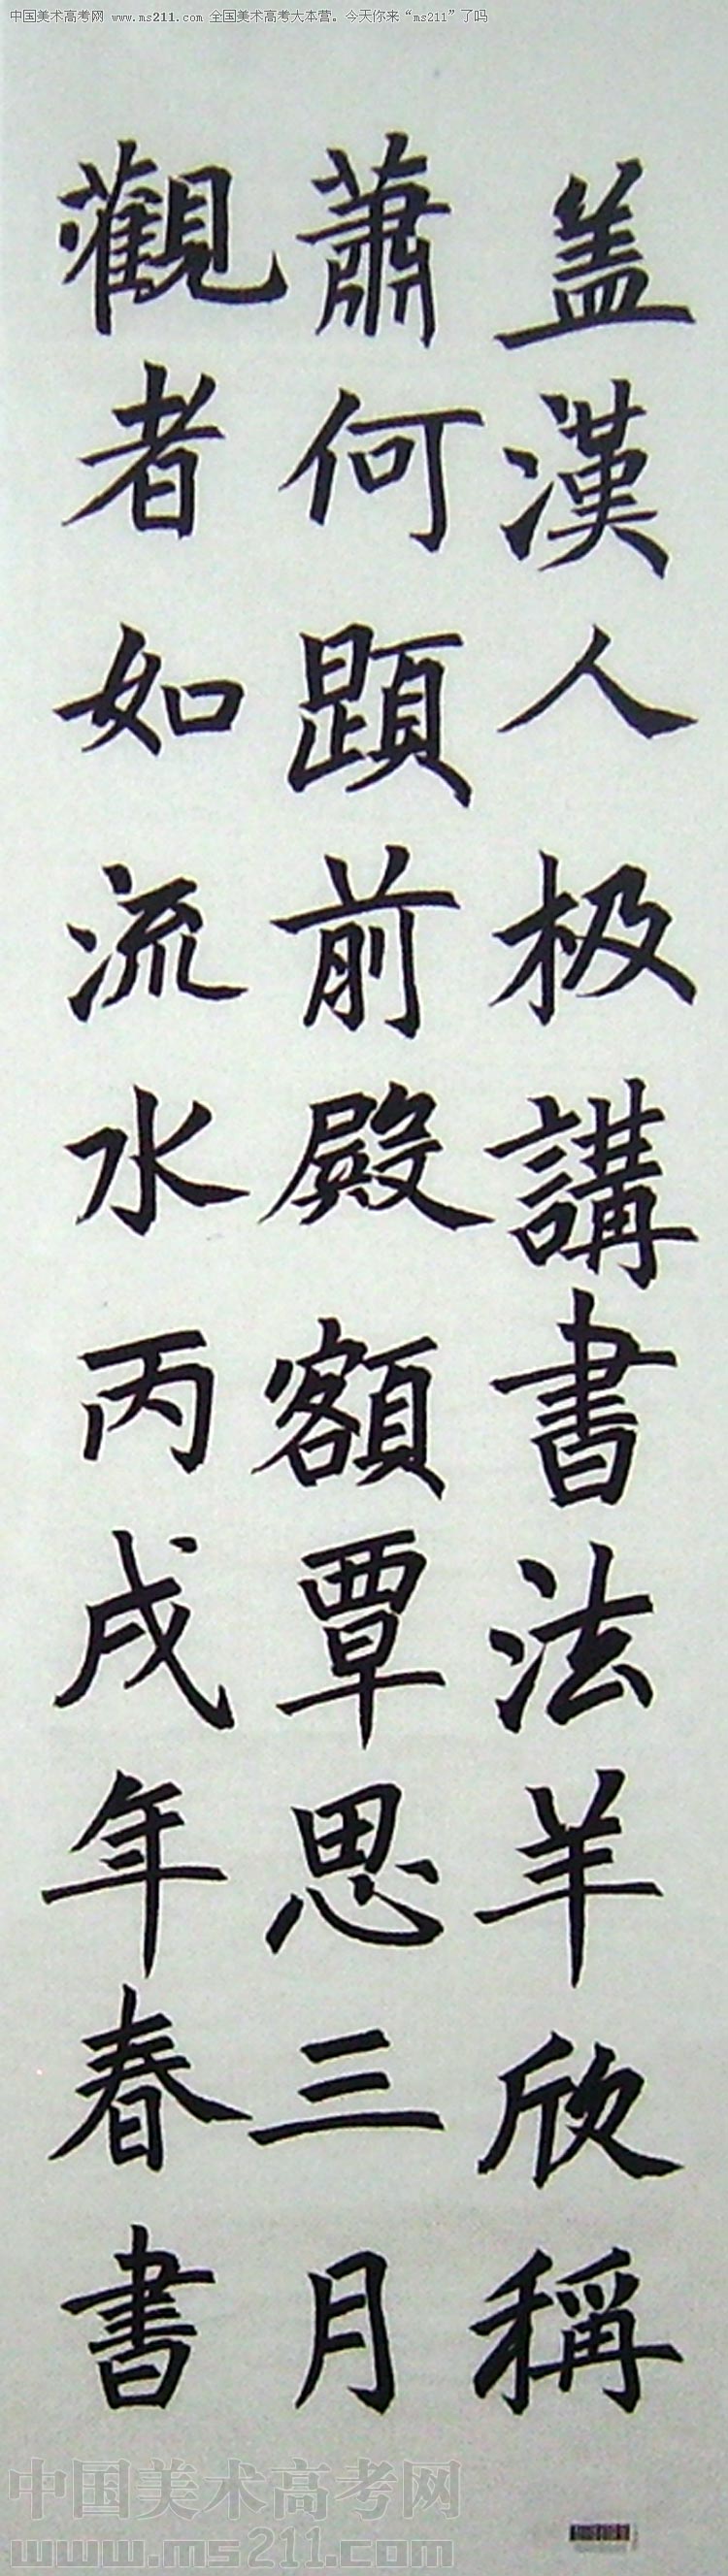 中国美术高考网 www.ms211.com 全国美术高考大本营。今天你来“ms211”了吗
盖漢人极講書法羊欣稱
蕭何題前殿額覃思三月
觀者如流水丙戌年春書
中国美术高考网
www.ms211.com